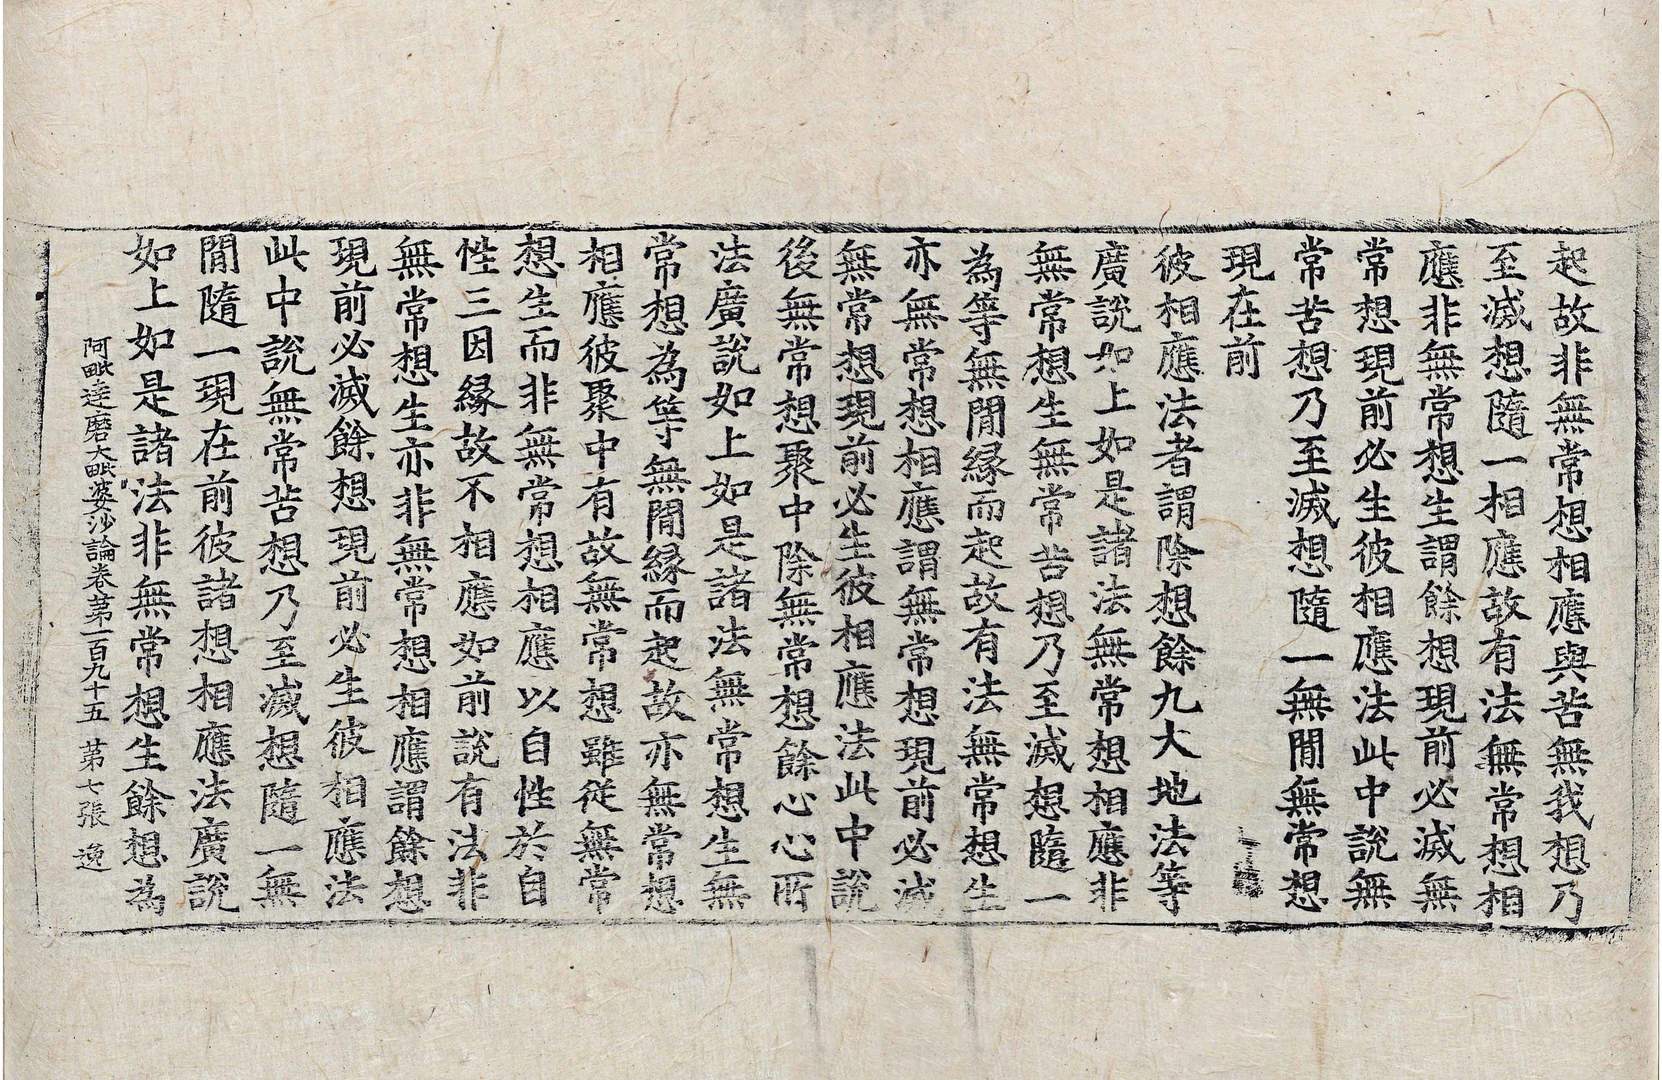 起故非無常想相應與苦無我想乃
至滅想隨一相應故有法無常想相
應非無常想生謂餘想現前必滅無
常想現前必生彼相應法此中說無
常苦想乃至滅想隨一無閒無常想
現在前
彼相應法者謂除想餘九大地法等
廣說如上如是諸法無常想相應非
無常想生無常苦想乃至滅想隨一
為等無閒縁而起故有法無常想生
亦無常想相應謂無常想現前必滅
無常想現前必生彼相應法此中說
後無常想聚中除無常想餘心心所
法廣說如上如是諸法無常想生無
常想為等無閒縁而起故亦無常想
相應彼聚中有故無常想雖從無常
想生而非無常想相應以自性於自
性三因縁故不相應如前說有法非
無常想生亦非無常想相應謂餘想
現前必滅餘想現前必生彼相應法
此中說無常苦想乃至滅想隨一無
閒隨一現在前彼諸想相應法廣說
如上如是諸法非無常想生餘想為
阿毗達磨大毗婆沙論卷第一百九十五 第七張 逸